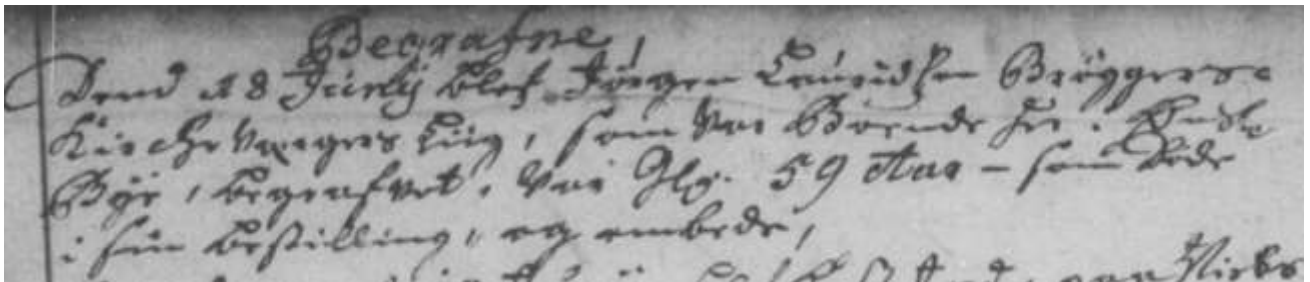 Begrafne,
Dend 18 Junij blef Jörgen Lauridsen Bröggers
Kirche Vergers Liig, som var Boende her i
Bÿe, begrafvet, var Glꝫ. 59 Aar – som
i sin bestilling, og embede,